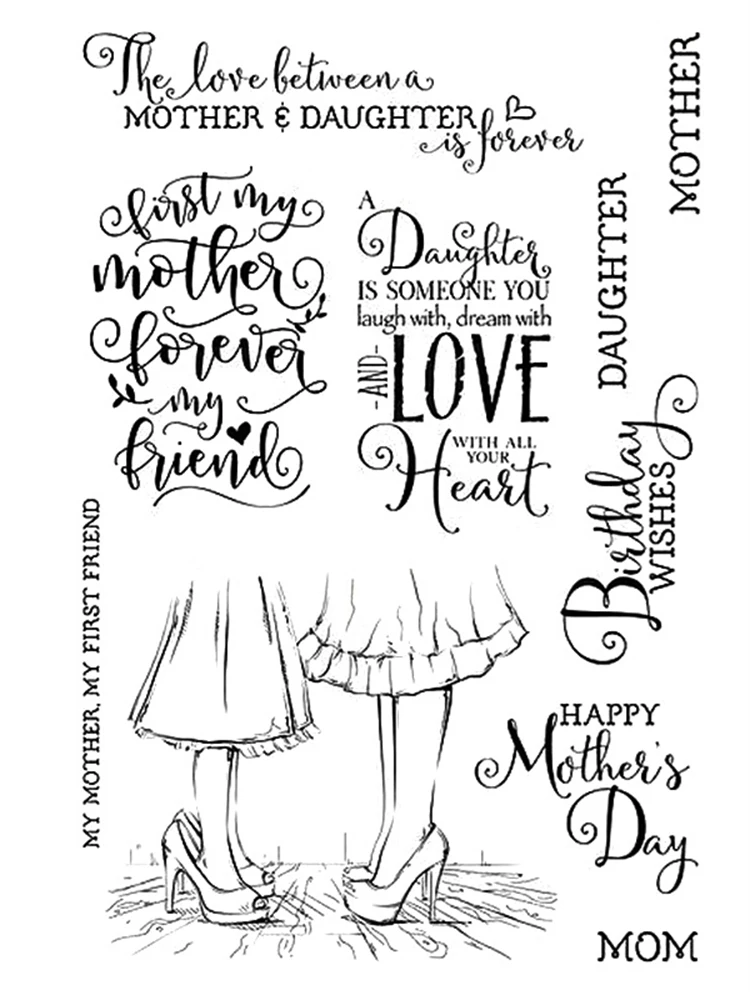 The love between a
MOTHER & DAUGHTER
is forever
first my
mother
forever
my
friend
A
Daughter
IS SOMEONE YOU
laugh with, dream with
-AND-
LOVE
WITH ALL
YOUR
Heart
MOTHER
DAUGHTER
Birthday
WISHES
MY MOTHER, MY FIRST FRIEND
HAPPY
Mother's
Day
MOM